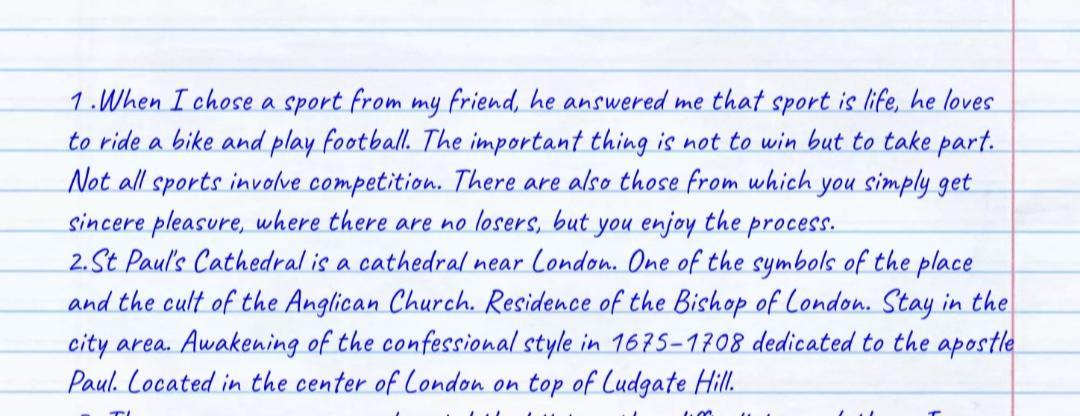 1.When I chose a sport from my friend, he answered me that sport is life, he loves
to ride a bike and play football. The important thing is not to win but to take part.
Not all sports involve competition. There are also those from which you simply get
sincere pleasure, where there are no losers, but you enjoy the process.
2.St Paul's Cathedral is a cathedral near London. One of the symbols of the place
and the cult of the Anglican Church. Residence of the Bishop of London. Stay in the
city area. Awakening of the confessional style in 1675-1708 dedicated to the apostle
Paul. Located in the center of London on top of Ludgate Hill.